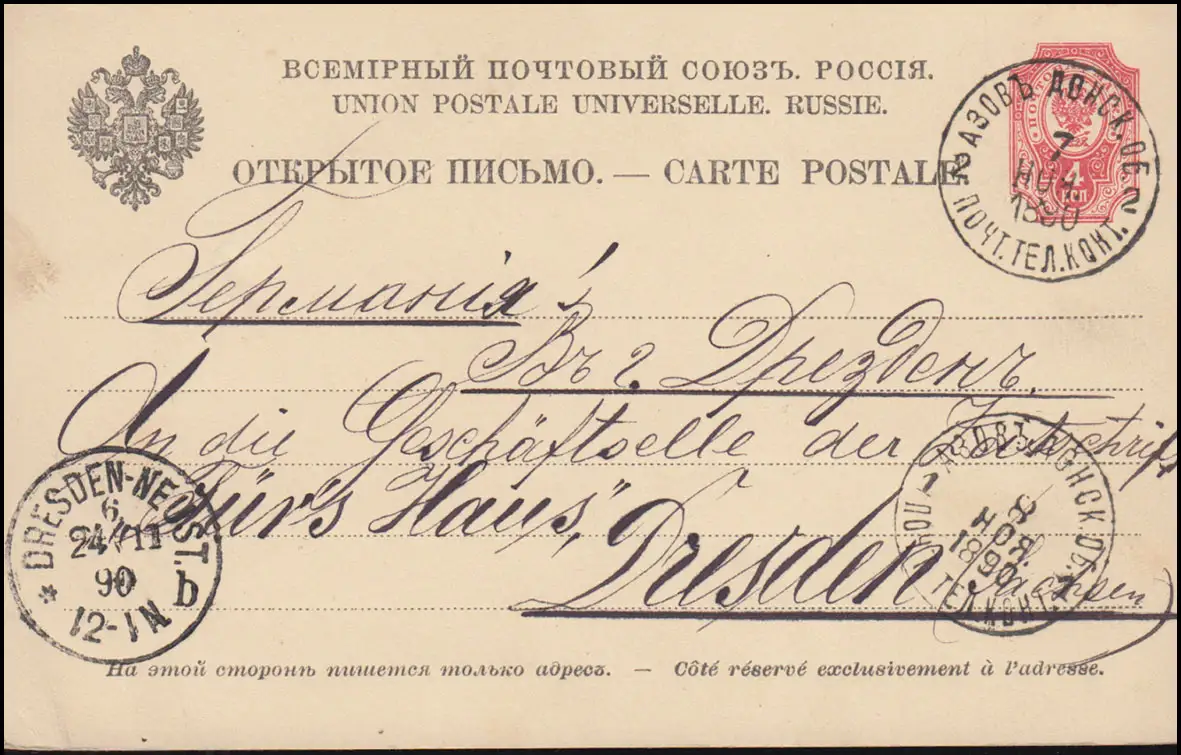 ВСЕМІРНЫЙ ПОЧТОВЫЙ СОЮЗЪ. РОССІЯ.
UNION POSTALE UNIVERSELLE. RUSSIE.
ОТКРЫТОЕ ПИСЬМО. — CARTE POSTALE.
ПОЧТО
4
КОП
АЗОВЪ ДОНСК. ОБ.
7
НОЯ
1890
2 2
ПОЧТ. ТЕЛ. КОНТ.
Германія!
Въ г. Дрезденъ.
An die Geschäftselle der Zeitschrift
"Fürs Haus",
Dresden
Sachsen
АЗОВЪ ДОНСК. ОБ.
8
НОЯ
1890
ПОЧ ТЕЛ. КОНТ.
DRESDEN-NEUST.
6
24/11
90
* b
12-1N
На этой сторонѣ пишется только адресъ. — Côté réservé exclusivement à l'adresse.